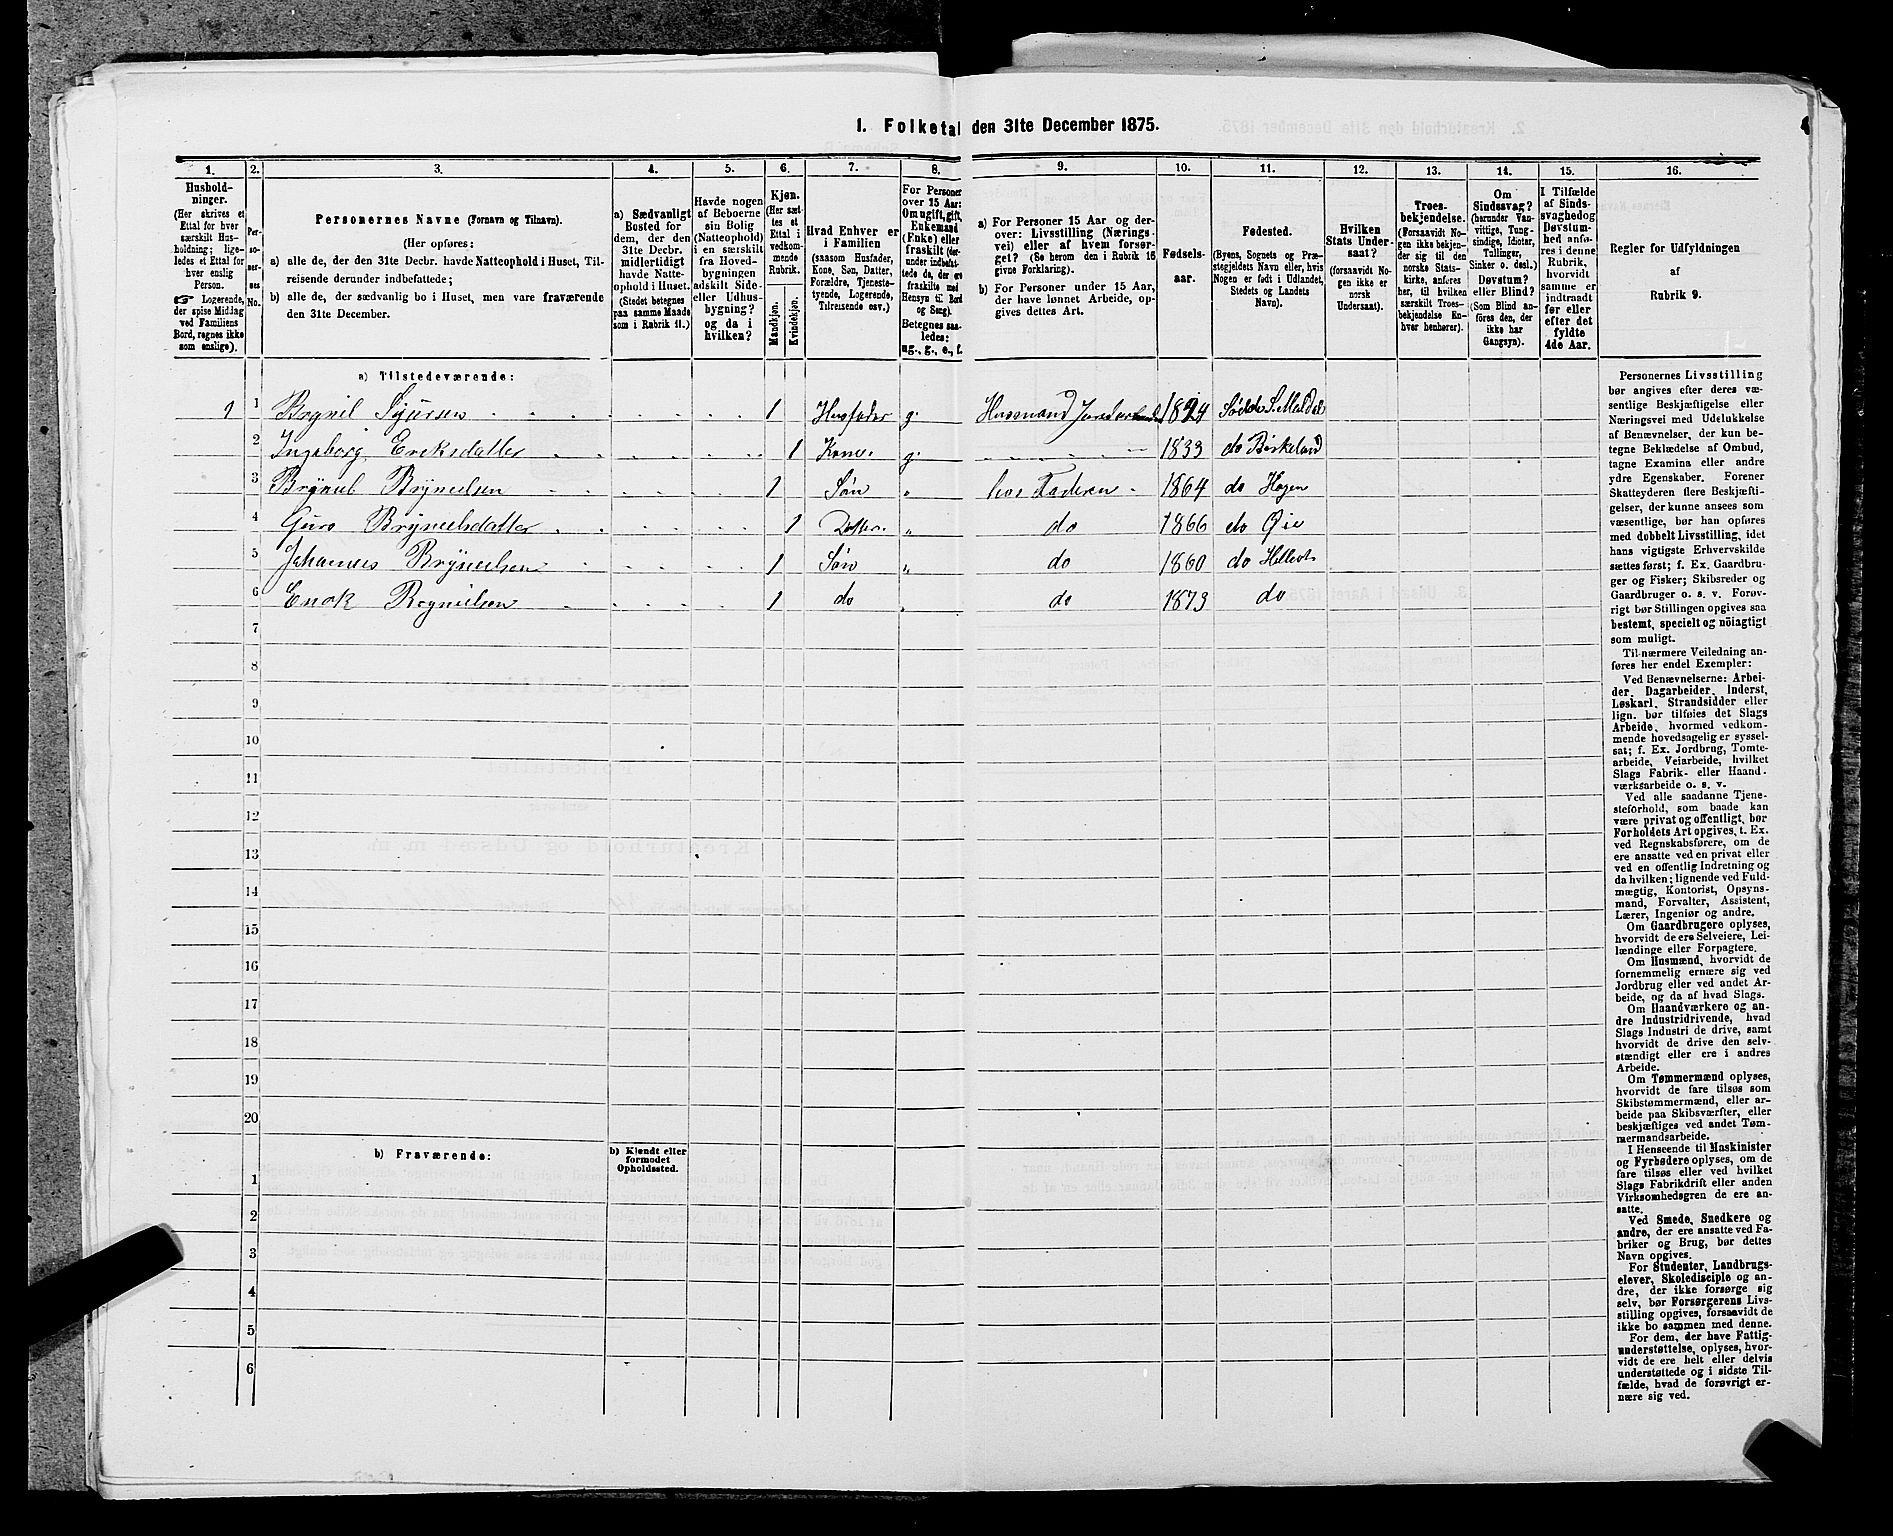 1. Folketal den 31te December 1875.
1. 2. 3. 4. 5. 6. 7. 8. 9. 10. 11. 12. 13. 14. 15. 16.
Hushold-
ninger.
(Her skrives et
Ettal for hver
særskilt Hus-
holdning; lige-
ledes et Ettal for
hver enslig
Person.
☞ Logerende,
der spise Middag
ved Familiens
Bord, regnes ikke
som enslige).
Per-
so-
ner-
nes
No.
Personernes Navne (Fornavn og Tilnavn).
(Her opføres:
a) alle de, der den 31te Decbr. havde Natteophold i Huset, Til-
reisende derunder indbefattede;
b) alle de, der sædvanlig bo i Huset, men vare fraværende
den 31te December.
a) Sædvanligt
Bosted for
dem, der den
31te Decbr.
midlertidigt
havde Natte-
ophold i Huset.
(Stedet betegnes
paa samme Maade
som i Rubrik 11.)
Havde nogen
af Beboerne
sin Bolig
(Natteophold)
i en særskilt
fra Hoved-
bygningen
adskilt Side-
eller Udhus-
bygning?
og da i
hvilken?
Kjøn.
(Her sæt-
tes et
Ettal i
vedkom-
mende
Rubrik.
Mandkjøn.
Kvindekjøn.
Hvad Enhver er
i Familien
(saasom Husfader,
Kone, Søn, Datter,
Forældre, Tjeneste-
tyende, Logerende,
Tilreisende osv.)
For Personer
over 15 Aar:
Om ugift, gift,
Enkemand
(Enke) eller
fraskilt (der-
under indbefat-
tede de, der ere
fraskilte med
Hensyn til Bord
og Seng).
Betegnes saa-
ledes:
ug., g., e., f.
a) For Personer 15 Aar og der-
over: Livsstilling (Nærings-
vei) eller af hvem forsør-
get? (Se herom den i Rubrik 16
givne Forklaring).
b) For Personer under 15 Aar,
der have lønnet Arbeide, op-
gives dettes Art.
Fødsels-
aar.
Fødested.
(Byens, Sognets og Præ-
stegjeldets Navn eller, hvis
Nogen er født i Udlandet,
Stedets og Landets
Navn).
Hvilken
Stats Under-
saat?
(forsaavidt No-
gen ikke er
norsk
Undersaat).
Troes-
bekjendelse.
(Forsaavidt No-
gen ikke bekjen-
der sig til den
norske Stats-
kirke, anføres
her, til hvilken
særskilt Troes-
bekjendelse En-
hver henhører).
Om
Sindssvag?
(herunder Van-
vittige, Tung-
sindige, Idioter,
Tullinger,
Sinker o. desl.)
Døvstum?
eller Blind?
(Som Blind an-
føres den, der
ikke har
Gangsyn).
I Tilfælde
af Sinds-
svaghed og
Døvstum-
hed anfø-
res i denne
Rubrik,
hvorvidt
samme er
indtraadt
før eller
efter det
fyldte
4de Aar.
Regler for Udfyldningen
af
Rubrik 9.
a) Tilstedeværende:
1 1 Brynil Sjursen 1 Husfader g. Husmand 1824
2 Ingeborg Eriksdatter 1 Kone g. 1833 do Birkeland
3 Bryniel Bryneelsen 1 Søn „ hos Faderen 1864 do Hogen
4 Guro Bryneelsdatter 1 Datter „ do 1866 do Øie
5 Johannes Bryneelsen 1 Søn „ do 1860 do
6 Enok Brynielsen 1 do „ do 1873 do
7
8
9
10
11
12
13
14
15
16
17
18
19
20
b) Fraværende:
b) Kjendt eller
formodet
Opholdssted.
1
2
3
4
5
6
Personernes Livsstilling
bør angives efter deres væ-
sentlige Beskjæftigelse eller
Næringsvei med Udelukkelse
af Benævnelser, der kun be-
tegne Beklædelse af Ombud,
tagne Examina eller andre
ydre Egenskaber. Forener
Skatteyderen flere Beskjæfti-
gelser, der kunne ansees som
væsentlige, bør han opføres
med dobbelt Livsstilling, idet
hans vigtigste Erhvervskilde
sættes først; f. Ex. Gaardbru-
ger og Fisker; Skibsreder og
Gaardbruger o. s. v. Forøv-
rigt bør Stillingen opgives saa
bestemt, specielt og nöiagtigt
som muligt.
Til nærmere Veiledning an-
føres her endel Exempler:
Ved Benævnelserne: Arbei-
der, Dagarbeider, Inderst,
Løskarl, Strandsidder eller
lign. bør tilføies det Slags
Arbeide, hvormed vedkom-
mende hovedsagelig er syssel-
sat; f. Ex. Jordbrug, Tomte-
arbeide, Veiarbeide, hvilket
Slags Fabrik- eller Haand-
værksarbeide o. s. v.
Ved alle saadanne Tjene-
steforhold, som baade kan
være privat og offentligt, bør
Forholdets Art opgives, t. Ex.
ved Regnskabsførere, om de
ere ansatte ved en privat eller
ved en offentlig Indretning og
da hvilken; lignende ved Fuld-
mægtig, Kontorist, Opsyns-
mand, Forvalter, Assistent,
Lærer, Ingeniør og andre.
Om Gaardbrugere oplyses,
hvorvidt de ere Selveiere, Lei-
lændinge eller Forpagtere.
Om Husmænd, hvorvidt de
fornemmelig ernære sig ved
Jordbrug eller ved andet Ar-
beide, og da af hvad Slags.
Om Haandværkere og an-
dre Industridrivende, hvad
Slags Industri de drive, samt
hvorvidt de drive den selv-
stændigt eller ere i andres
Arbeide.
Om Tømmermænd oplyses,
hvorvidt de fare tilsøs som
Skibstømmermænd, eller ar-
beide paa Skibsværfter, eller
beskjæftiges ved andet Tøm-
mermandsarbeide.
I Henseende til Maskinister
og Fyrbødere oplyses, om de
fare tilsøs eller ved hvilket
Slags Fabrikdrift eller anden
Virksomhedsgren de ere an-
satte.
Ved Smede, Snedkere og
andre, der ere ansatte ved Fa-
briker og Brug, bør dettes
Navn opgives.
For Studenter, Landbrugs-
elever, Skoledisciple og an-
dre, der ikke forsørge sig
selv, bør Forsørgerens Livs-
stilling opgives, forsaavidt de
ikke bo sammen med denne.
For dem, der have Fattig-
understøttelse, oplyses, hvor-
vidt de ere helt eller delvis
understøttede og i sidste Til-
fælde, hvad de forøvrigt er-
nære sig ved.